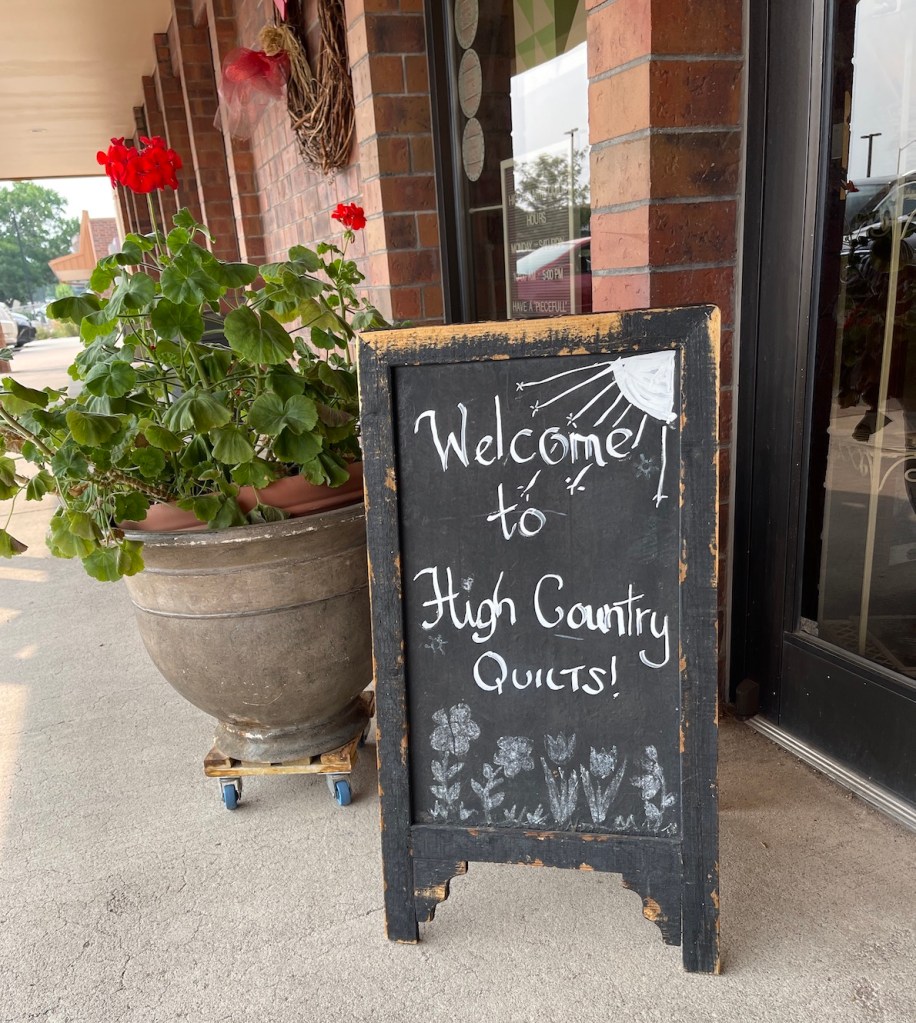 HOURS
HAVE A "PIECEFULL"
Welcome
to
High Country
QUILTS!